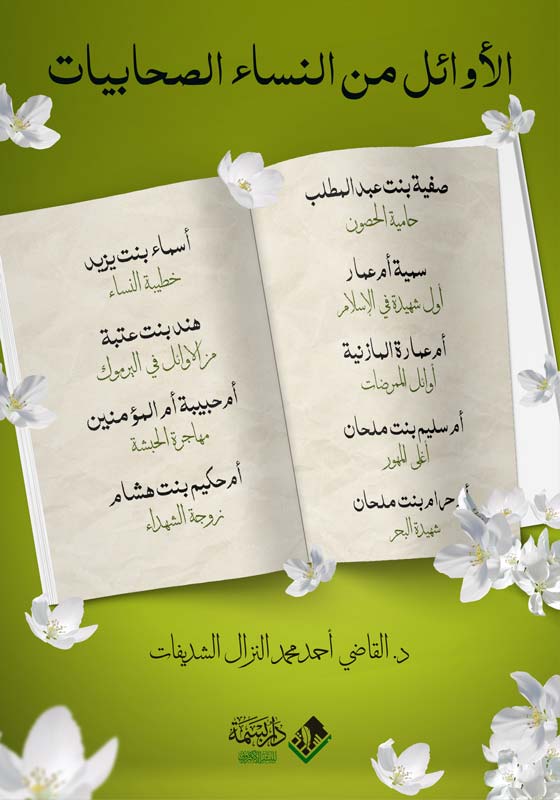 الأوائل من النساء الصحابيات
صفية بنت عبد المطلب
حامية الحصون
سمية أم عمار
أول شهيدة في الإسلام
أم عمارة المازنية
أوائل الممرضات
أم سليم بنت ملحان
أغلى المهور
أم حرام بنت ملحان
شهيدة البحر
أسماء بنت يزيد
خطيبة النساء
هند بنت عتبة
من الاوائل في اليرموك
أم حبيبة أم المؤمنين
مهاجرة الحبشة
أم حكيم بنت هشام
زوجة الشهداء
د. القاضي أحمد محمد النزال الشديفات
دار بسمة
للنشر الإلكتروني